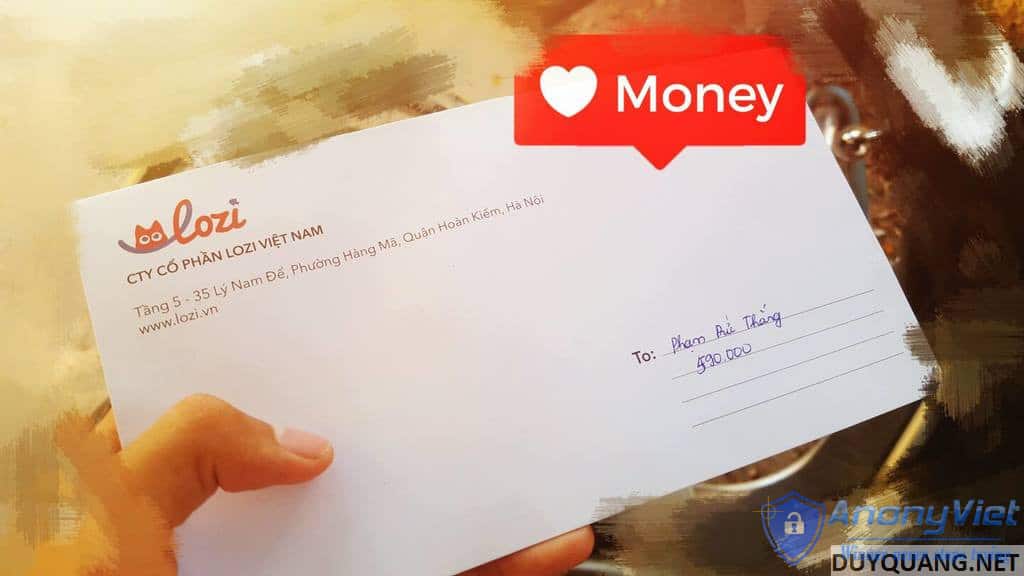 Money
lozi
CTY CỔ PHẦN LOZI VIỆT NAM
Tầng 5 - 35 Lý Nam Đế, Phường Hàng Mã, Quận Hoàn Kiếm, Hà Nội
www.lozi.vn
To: Phạm Thắng
590.000
AnonyViet
DUYQUANG.NET